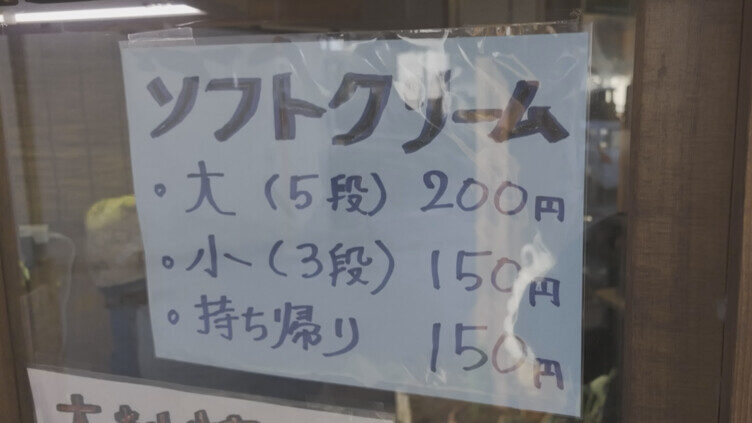 ソフトクリーム
・大(5段) 200円
・小(3段) 150円
・持ち帰り 150円